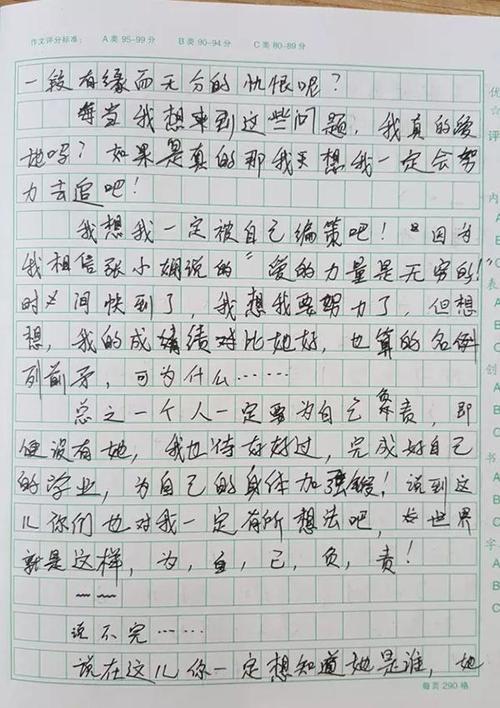 作文评分标准： A类 95-99分 B类 90-94分 C类 80-89分
一段有缘而无分的仇恨呢？
每当我想来到这些问题，我真的爱
她吗？如果是真的那我天想我一定会努
力去追吧！
我想我一定被自己编策吧！“因为
我相信张小娴说的“爱的力量是无穷的！”
时间快到了，我想我要努力了，但想
想，我的成绩对比她好，也算的名例
列前矛，可为什么……
总之一个人一定要为自己负责，即
便没有她，我也待好好过，完成好自己
的学业，为自己的身体加强锻！说到这
儿你们也对我一定有所想法吧，世界
就是这样，为，自，己，负，责！
说不完……
说在这儿你一定想知道她是谁，她
每页 290 格
优
☆
评
内
A
B
C
表
A
B
C
创
A
B
C
书
A
B
C
字
A
B
C